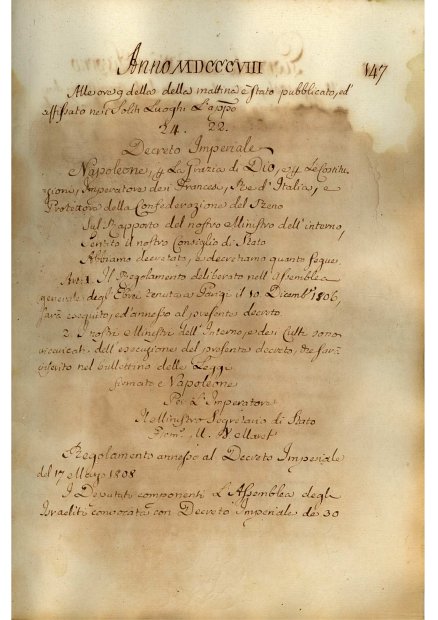 Anno MDCCCVIII 147
Alle ore 9 della della mattina è stato pubblicato, ed
affissato nei soliti Luoghi L'appo
24. 22.
Decreto Imperiale
Napoleone, La Grazia di Dio, e Le Costitu
zioni, Imperatore dei Frances, Re d'Italia, e
Protettore della Confederazione del Reno
Sul Rapporto del nostro Ministro dell'interno,
Sentito il nostro Consiglio di Stato
Abbiamo decretato, e decretiamo quanto segue
Art. 1. Il Regolamento deliberato nell'Assemblea
generale degl'Ebrei tenuta a Parigi il 10 Dicembe 1806,
sarà eseguito, ed annesso al presente decreto
2. I nostri Ministri dell'Interno, e dei Culti sono
incaricati dell'esecuzione del presente decreto, che sarà
inserito nel bullettino delle Leggi
firmato = Napoleone
Per L'Imperatore
Il Ministro Segretario di Stato
Firmo
Regolamento annesso al Decreto Imperiale
del 17 1808
I Deputati componenti L'Assemblea degli
Israeliti convocata con Decreto Imperiale de 30